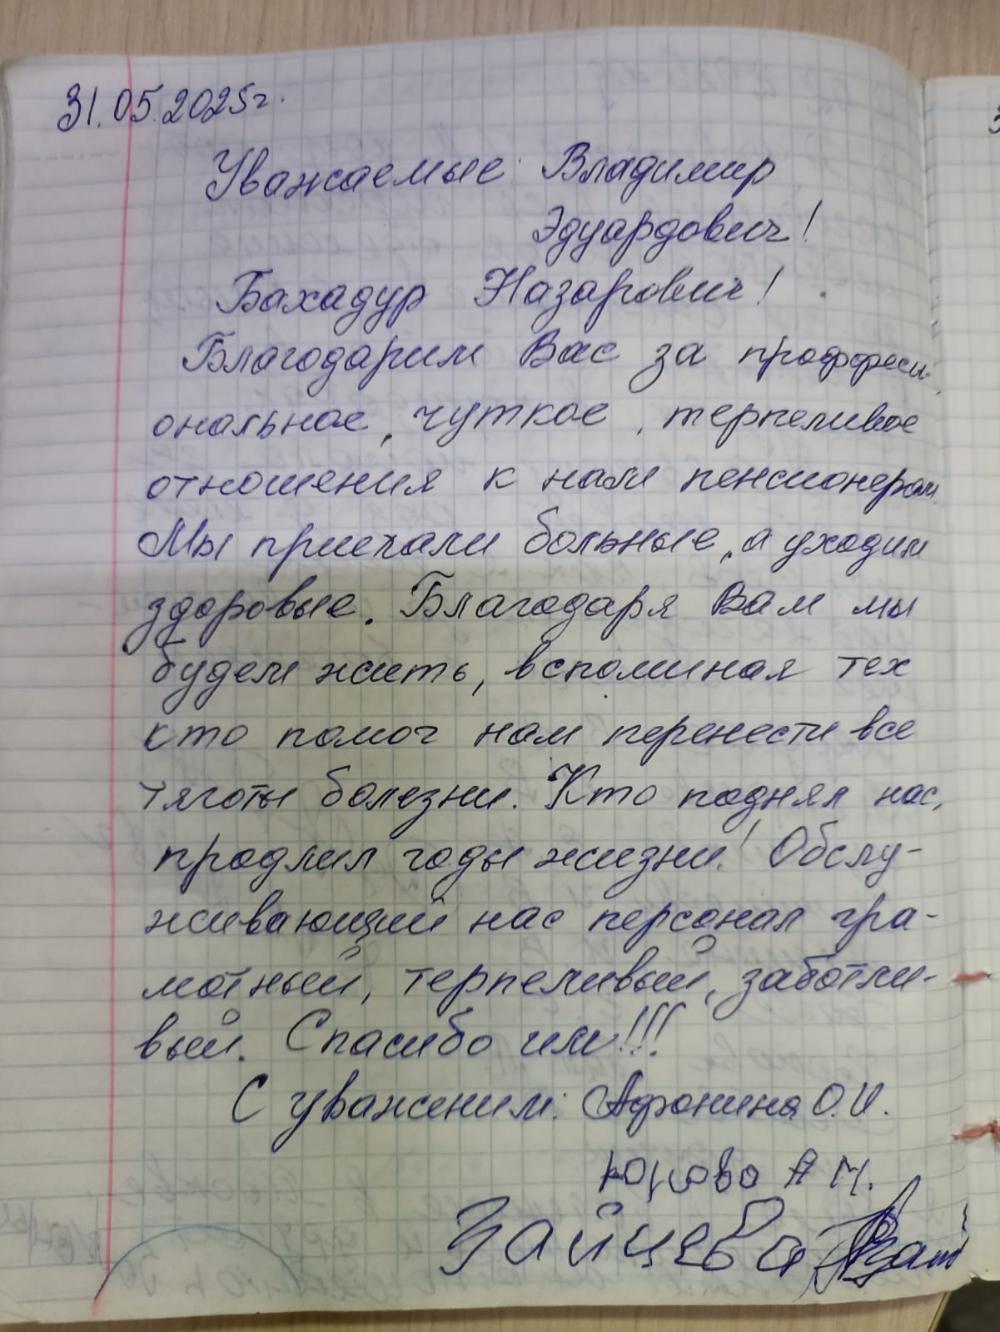 31.05.2025г.
Уважаемые Владимир
Эдуардович!
Бахадур Назарович!
Благодарим Вас за профреси-
ональное, чуткое, терпеливое
отношения к нам пенсионерам
Мы приехали больные, а уходим
здоровые. Благодаря Вам мы
будем жить, вспоминая тех
кто помог нам перенести все
тяготы болезни. Кто поднял нас,
продлил годы жизни! Обслу-
живающий нас персонал гра-
мотный, терпеливый, заботли-
вый. Спасибо им!!!
С уважением: Афонина О.И.
А М.
Зайцева